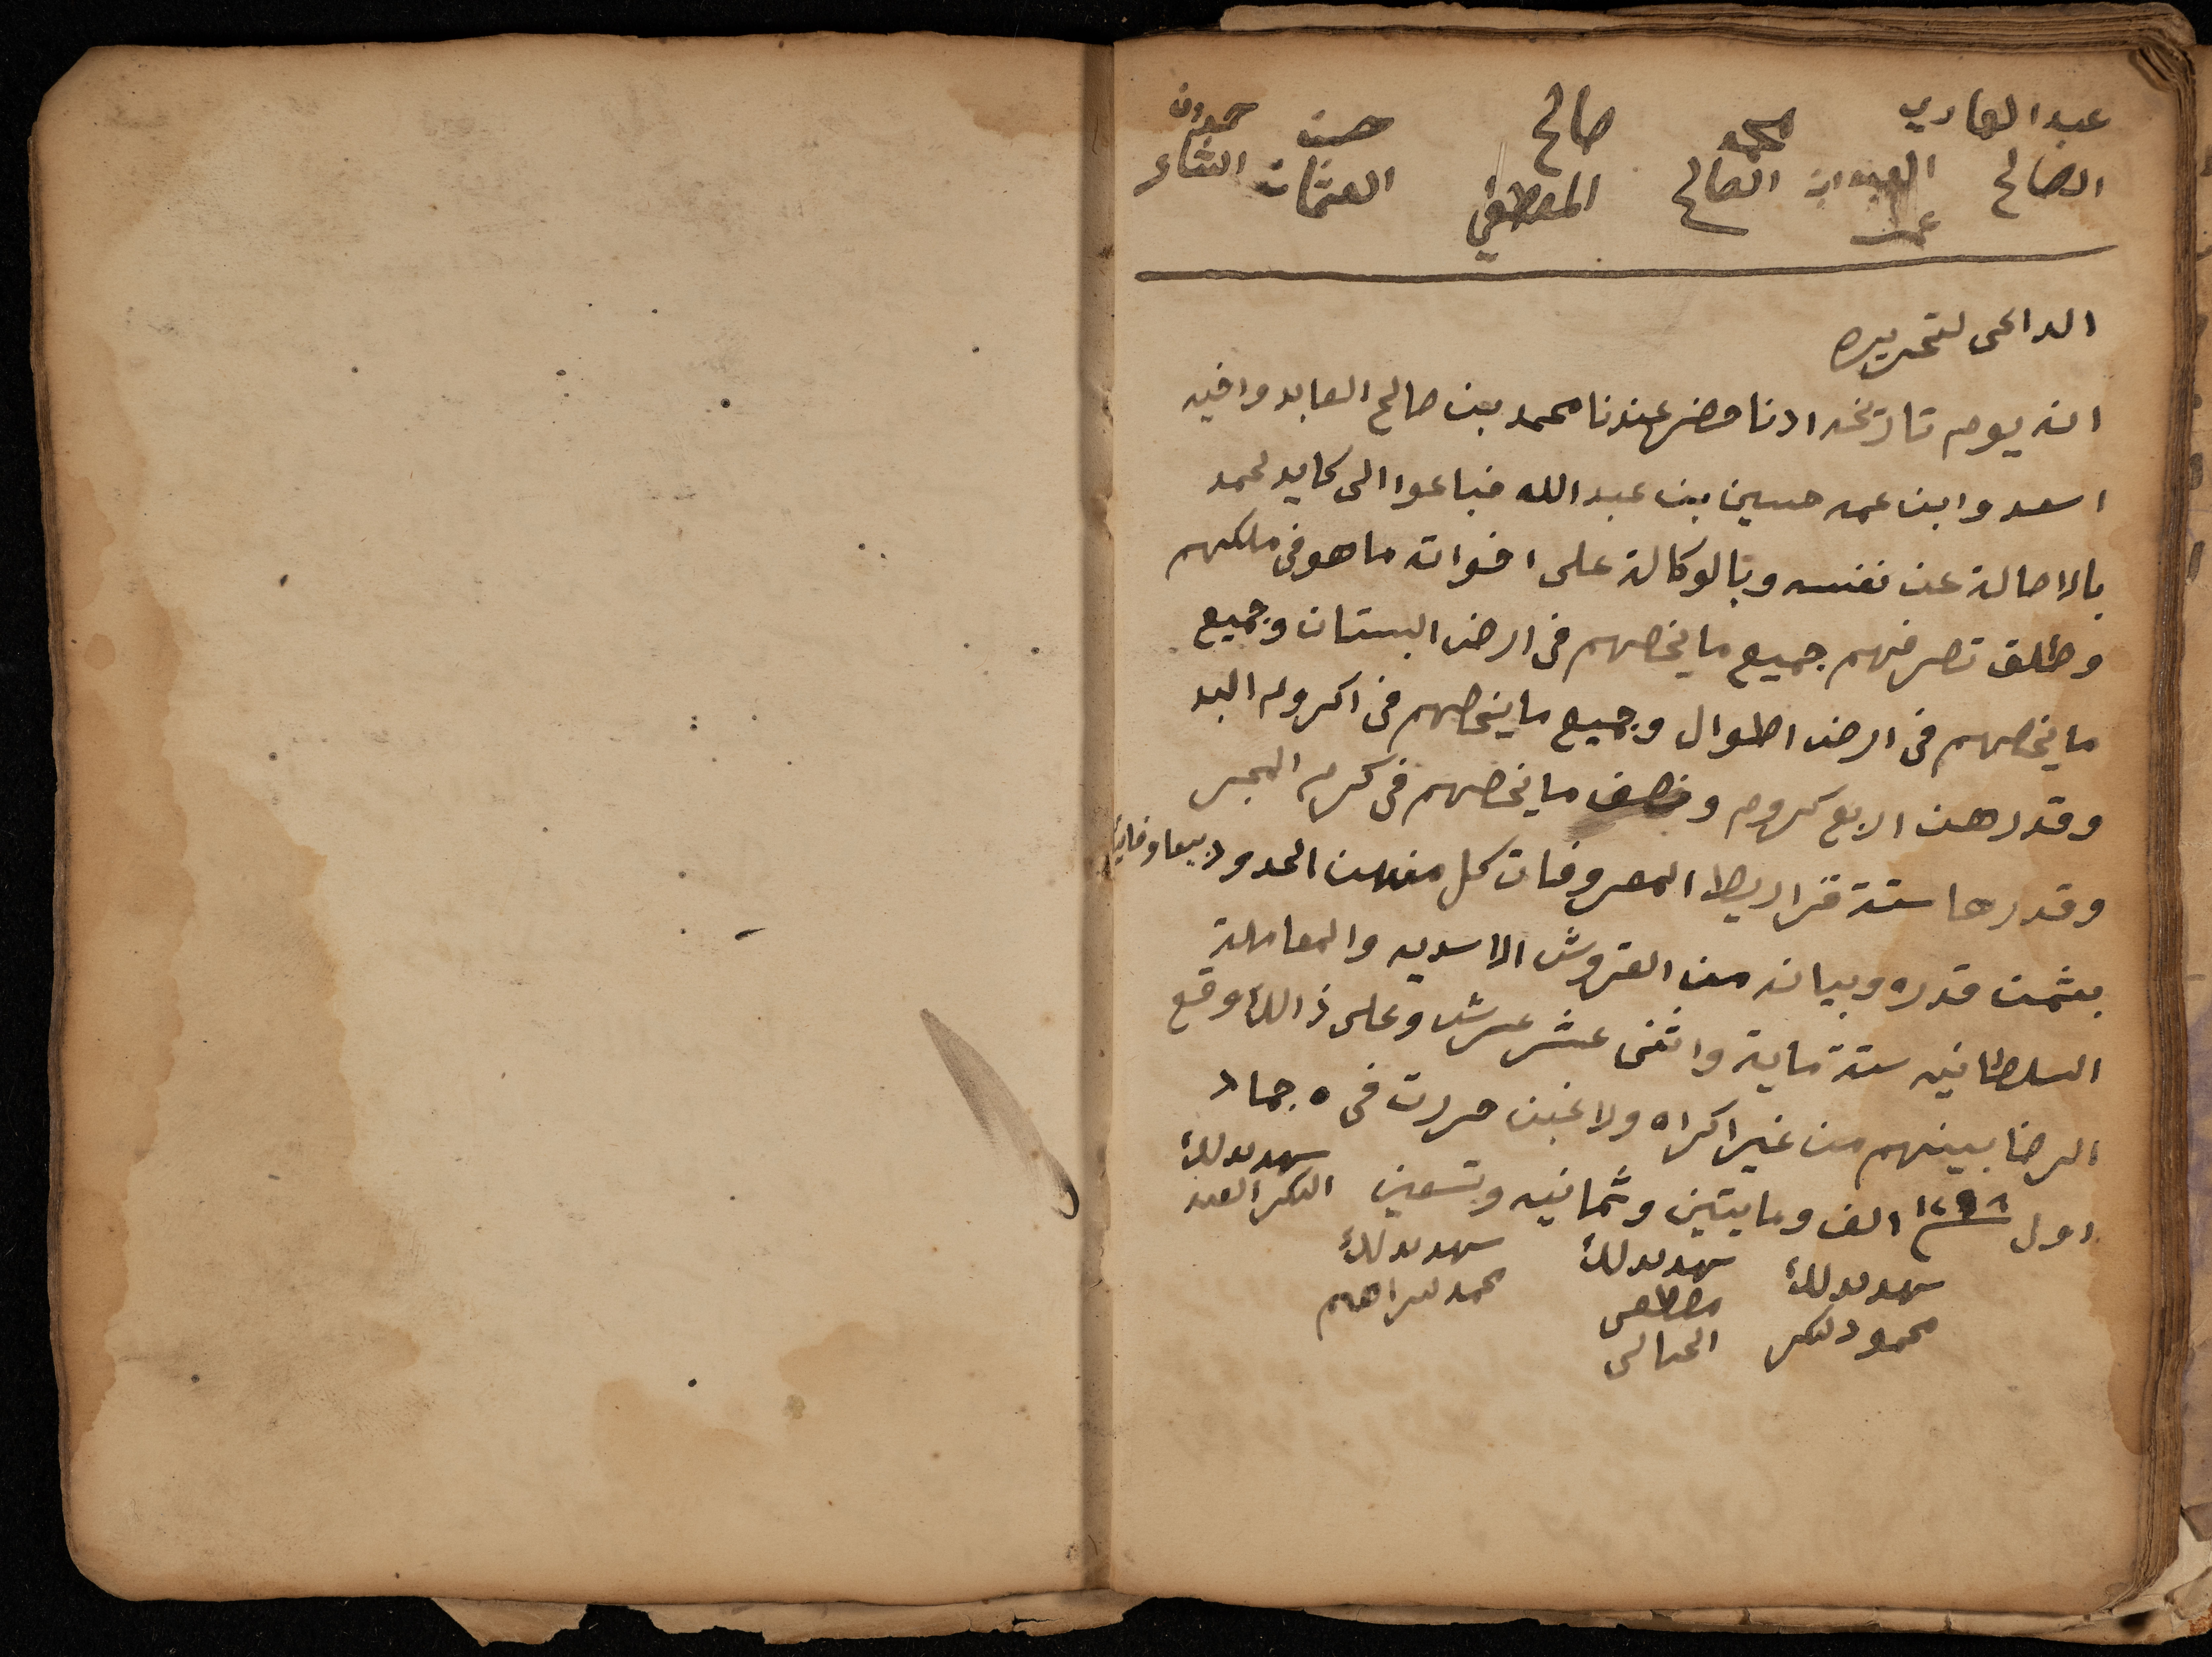 عبد الهادي محمد صالح حسن حمدان
الصالح الصالح المصطفى العثمان الشاعر
الداعى لتحريره
انه يوم تاريخه ادنا حضر عندنا محمد بن صالح العابد واخيه
اسعد وابن عمه حسين بن عبد الله فباعوا الى كايد لحمد
بالاصالة عن نفسه وبالوكالة على اخواته ما هو فى ملكهم
وطلق تصرفهم جميع ما يخصهم فى ارض البستان وجميع
ما يخصهم فى ارض اطوال وجميع ما يخصهم فى اكروم البد
وقدرهن اربع كروم ونصف ما يخصهم فى كرم المجر
وقدرها ستة قراريط المعروفات كل منهن الحدود بيعا وفايا
بثمن قدره وبيانه من القروش الاسديه والمعاملة
السلطانيه ستة ماية واثنى عشر عرش وعلى ذالك وقع
الرضا بينهم من غير اكراه ولا غبن حررت فى ٥ جماد
اول ١٢٩٨ الف ومايتين وثمانيه وتسعين شهد بذلك
شهد بذلك شهد بذلك شهد بذلك
محمود مصطفى محمد ابراهيم